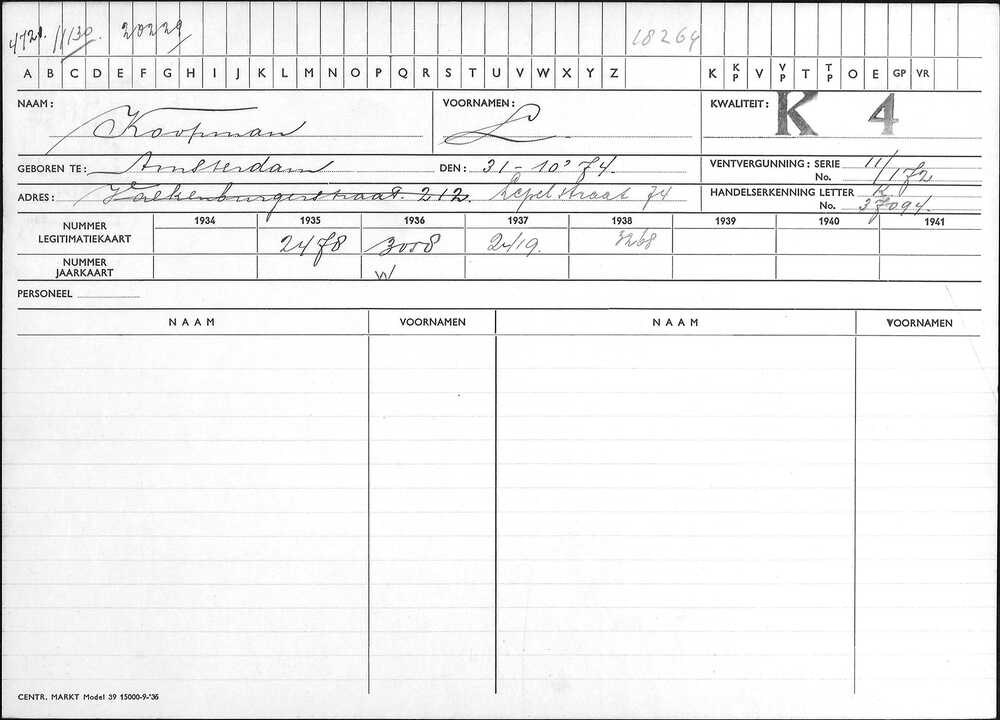 4721. 11130. 20229 18264
A B C D E F G H I J K L M N O P Q R S T U V W X Y Z K KP V VP T TP O E GP VR
NAAM: Koopman VOORNAMEN: L KWALITEIT: K 4
GEBOREN TE: Amsterdam DEN: 31-10-'74. VENTVERGUNNING: SERIE 11/
No. 172
ADRES: Valkenburgerstraat. 212. Lepelstraat 74 HANDELSERKENNING LETTER K
No. 37094.
1934 1935 1936 1937 1938 1939 1940 1941
NUMMER LEGITIMATIEKAART 2478 3008 2419. 3268
NUMMER JAARKAART W
PERSONEEL
NAAM VOORNAMEN NAAM VOORNAMEN
CENTR. MARKT Model 39 15000-9-'36